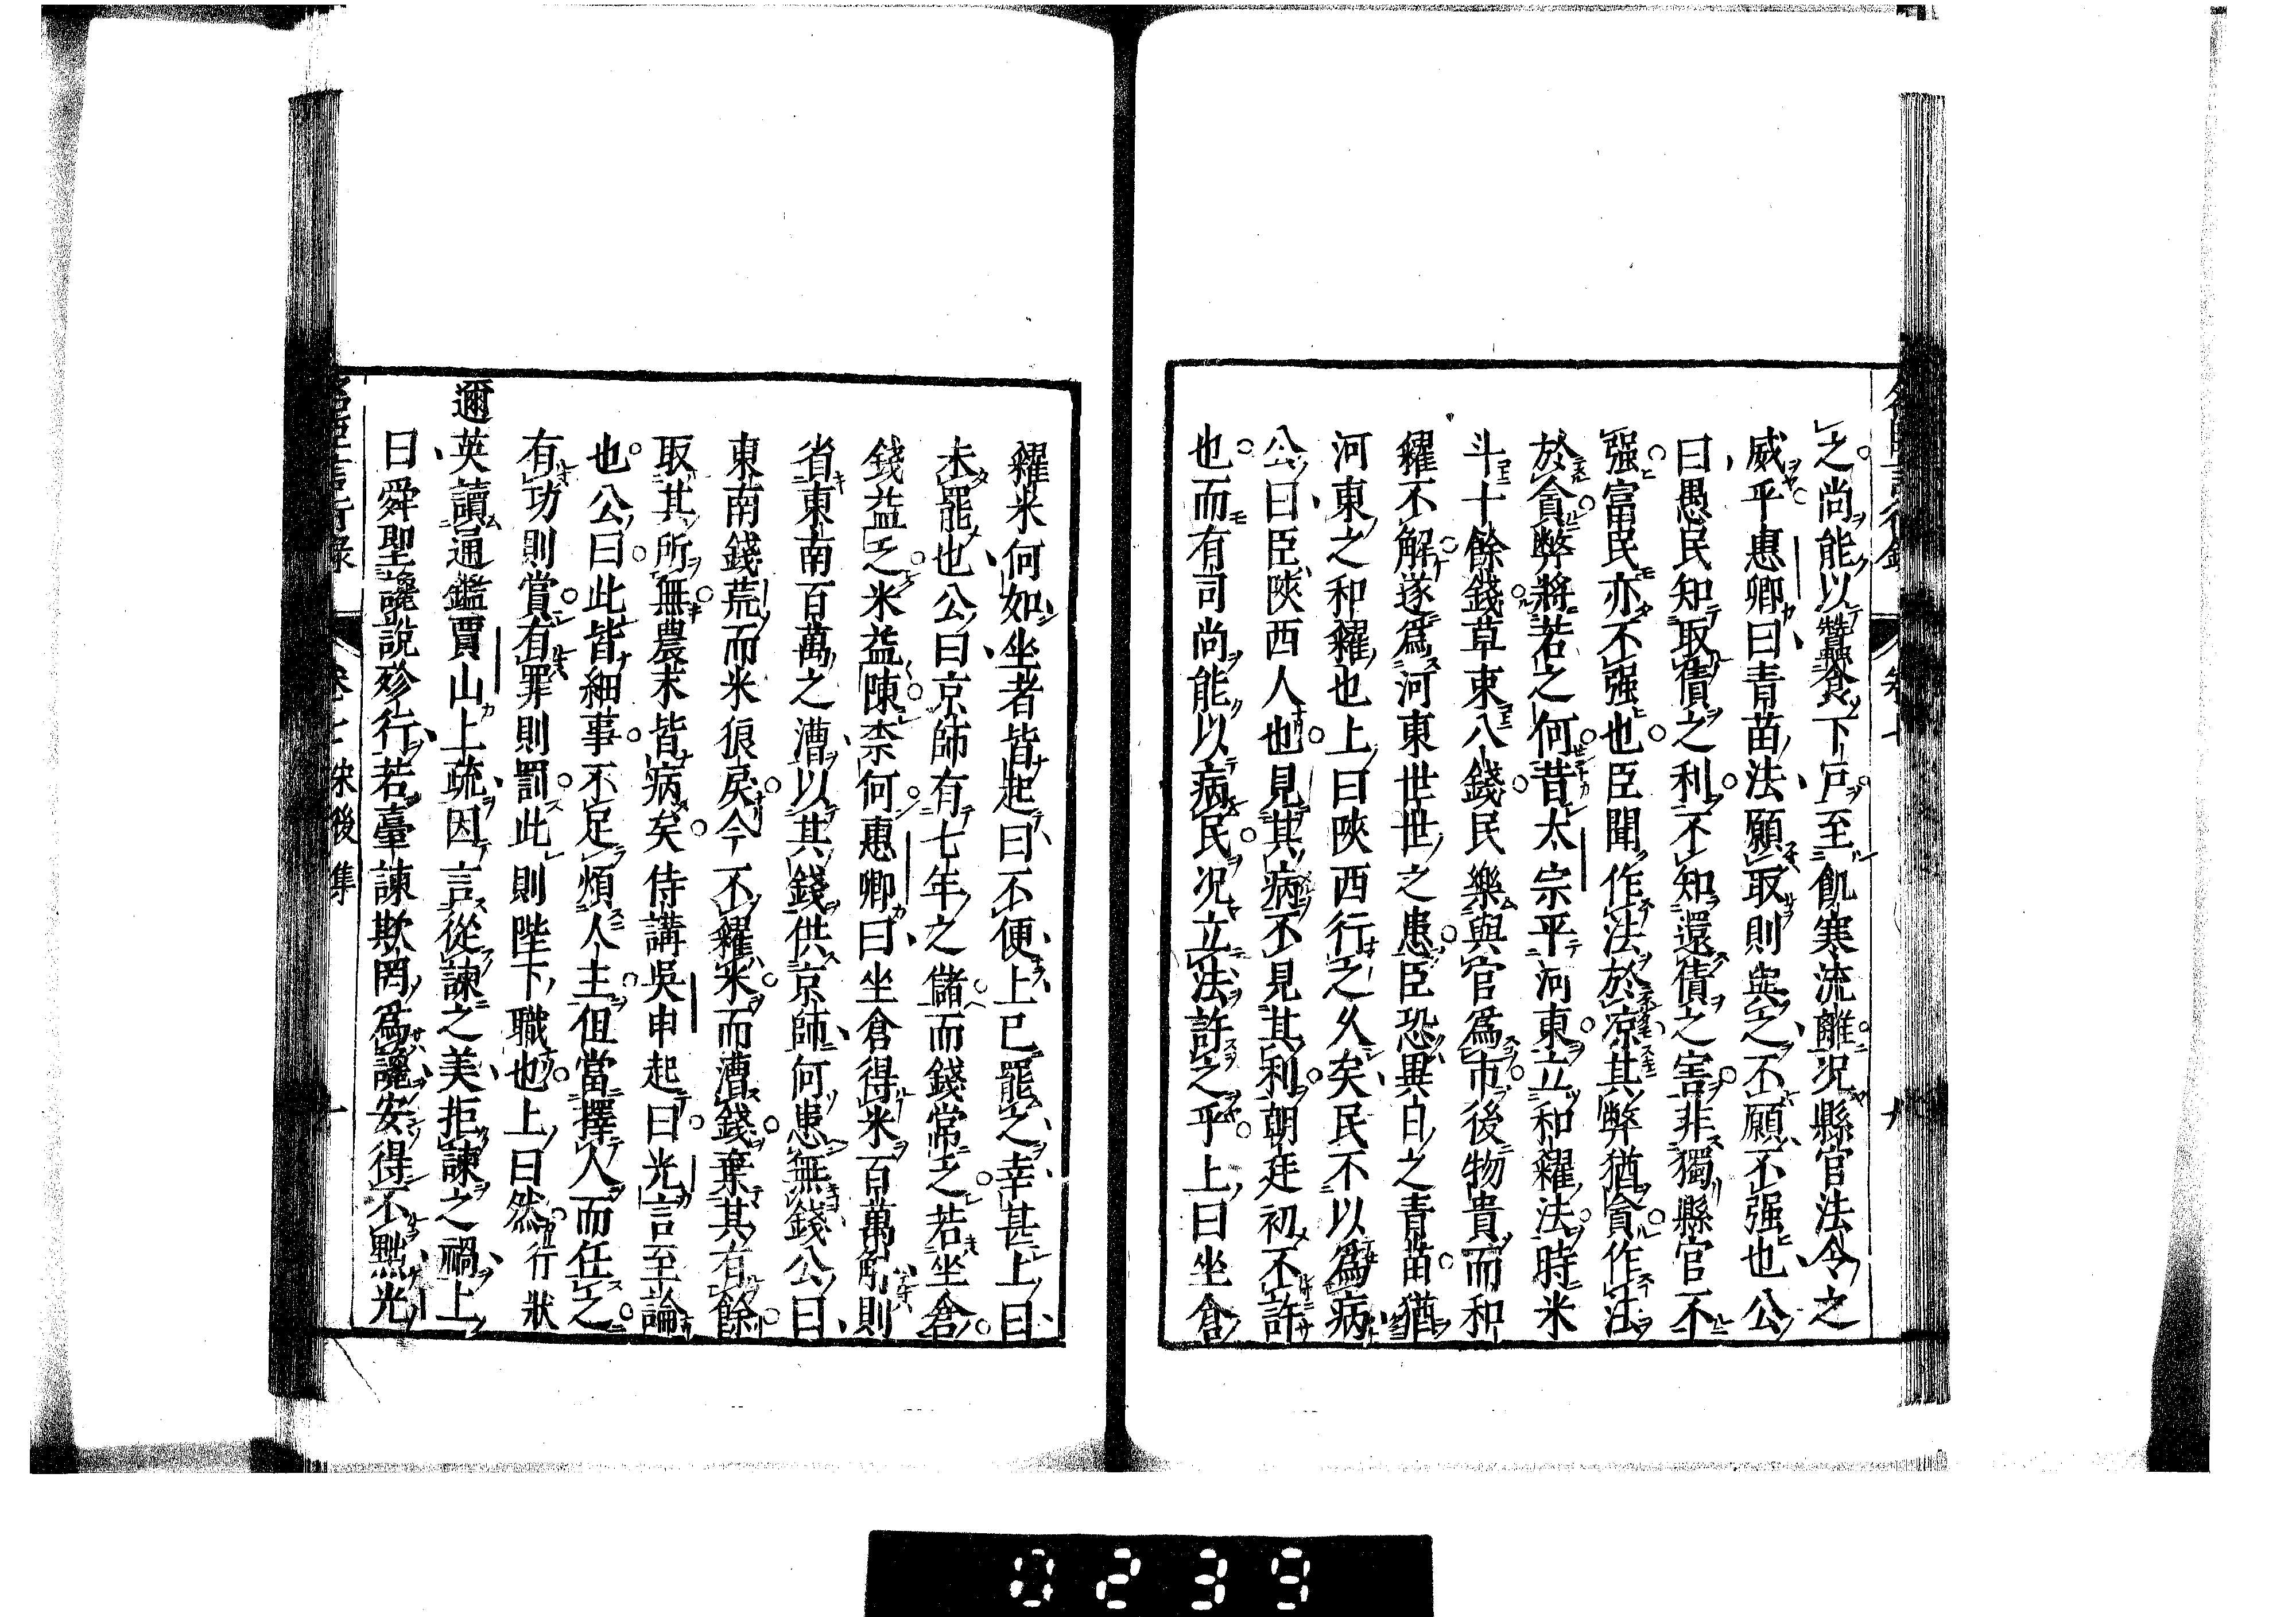 之尚能以蠶食下戶至飢寒流離況縣官法令之
威乎惠卿曰青苗法願取則與之不願不强也公
曰愚民知取債之利不知還債之害非獨縣官不
强富民亦不强也臣聞作法於凉其弊猶貪作法
於貪弊將若之何昔太宗平河東立和糴法時米
斗十餘錢草束八錢民樂與官爲市後物貴而和
糴不解遂爲河東世世之患臣恐異日之青苗猶
河東之和糴也上曰陝西行之久矣民不以爲病
公曰臣陝西人也見其病不見其利朝廷初不許
也而有司尚能以病民况立法許之乎上曰坐倉
糴米何如坐者皆起曰不便上已罷之幸甚上曰
未罷也公曰京師有七年之儲而錢常乏若坐倉
錢益乏米益陳柰何惠卿曰坐倉得米百萬斛則
省東南百萬之漕以其錢供京師何患無錢公曰
東南錢荒而米狼戾今不糴米而漕錢棄其有餘
取其所無農末皆病矣侍講吳申起曰光言至論
也公曰此皆細事不足煩人主但當擇人而任之
有功則賞有罪則罰此則陛下職也上曰然 行狀
邇英讀通鑑賈山上疏因言從諫之美拒諫之禍上
曰舜聖讒說殄行若臺諫欺罔爲讒安得不黜光
卷七 宋後集
0239